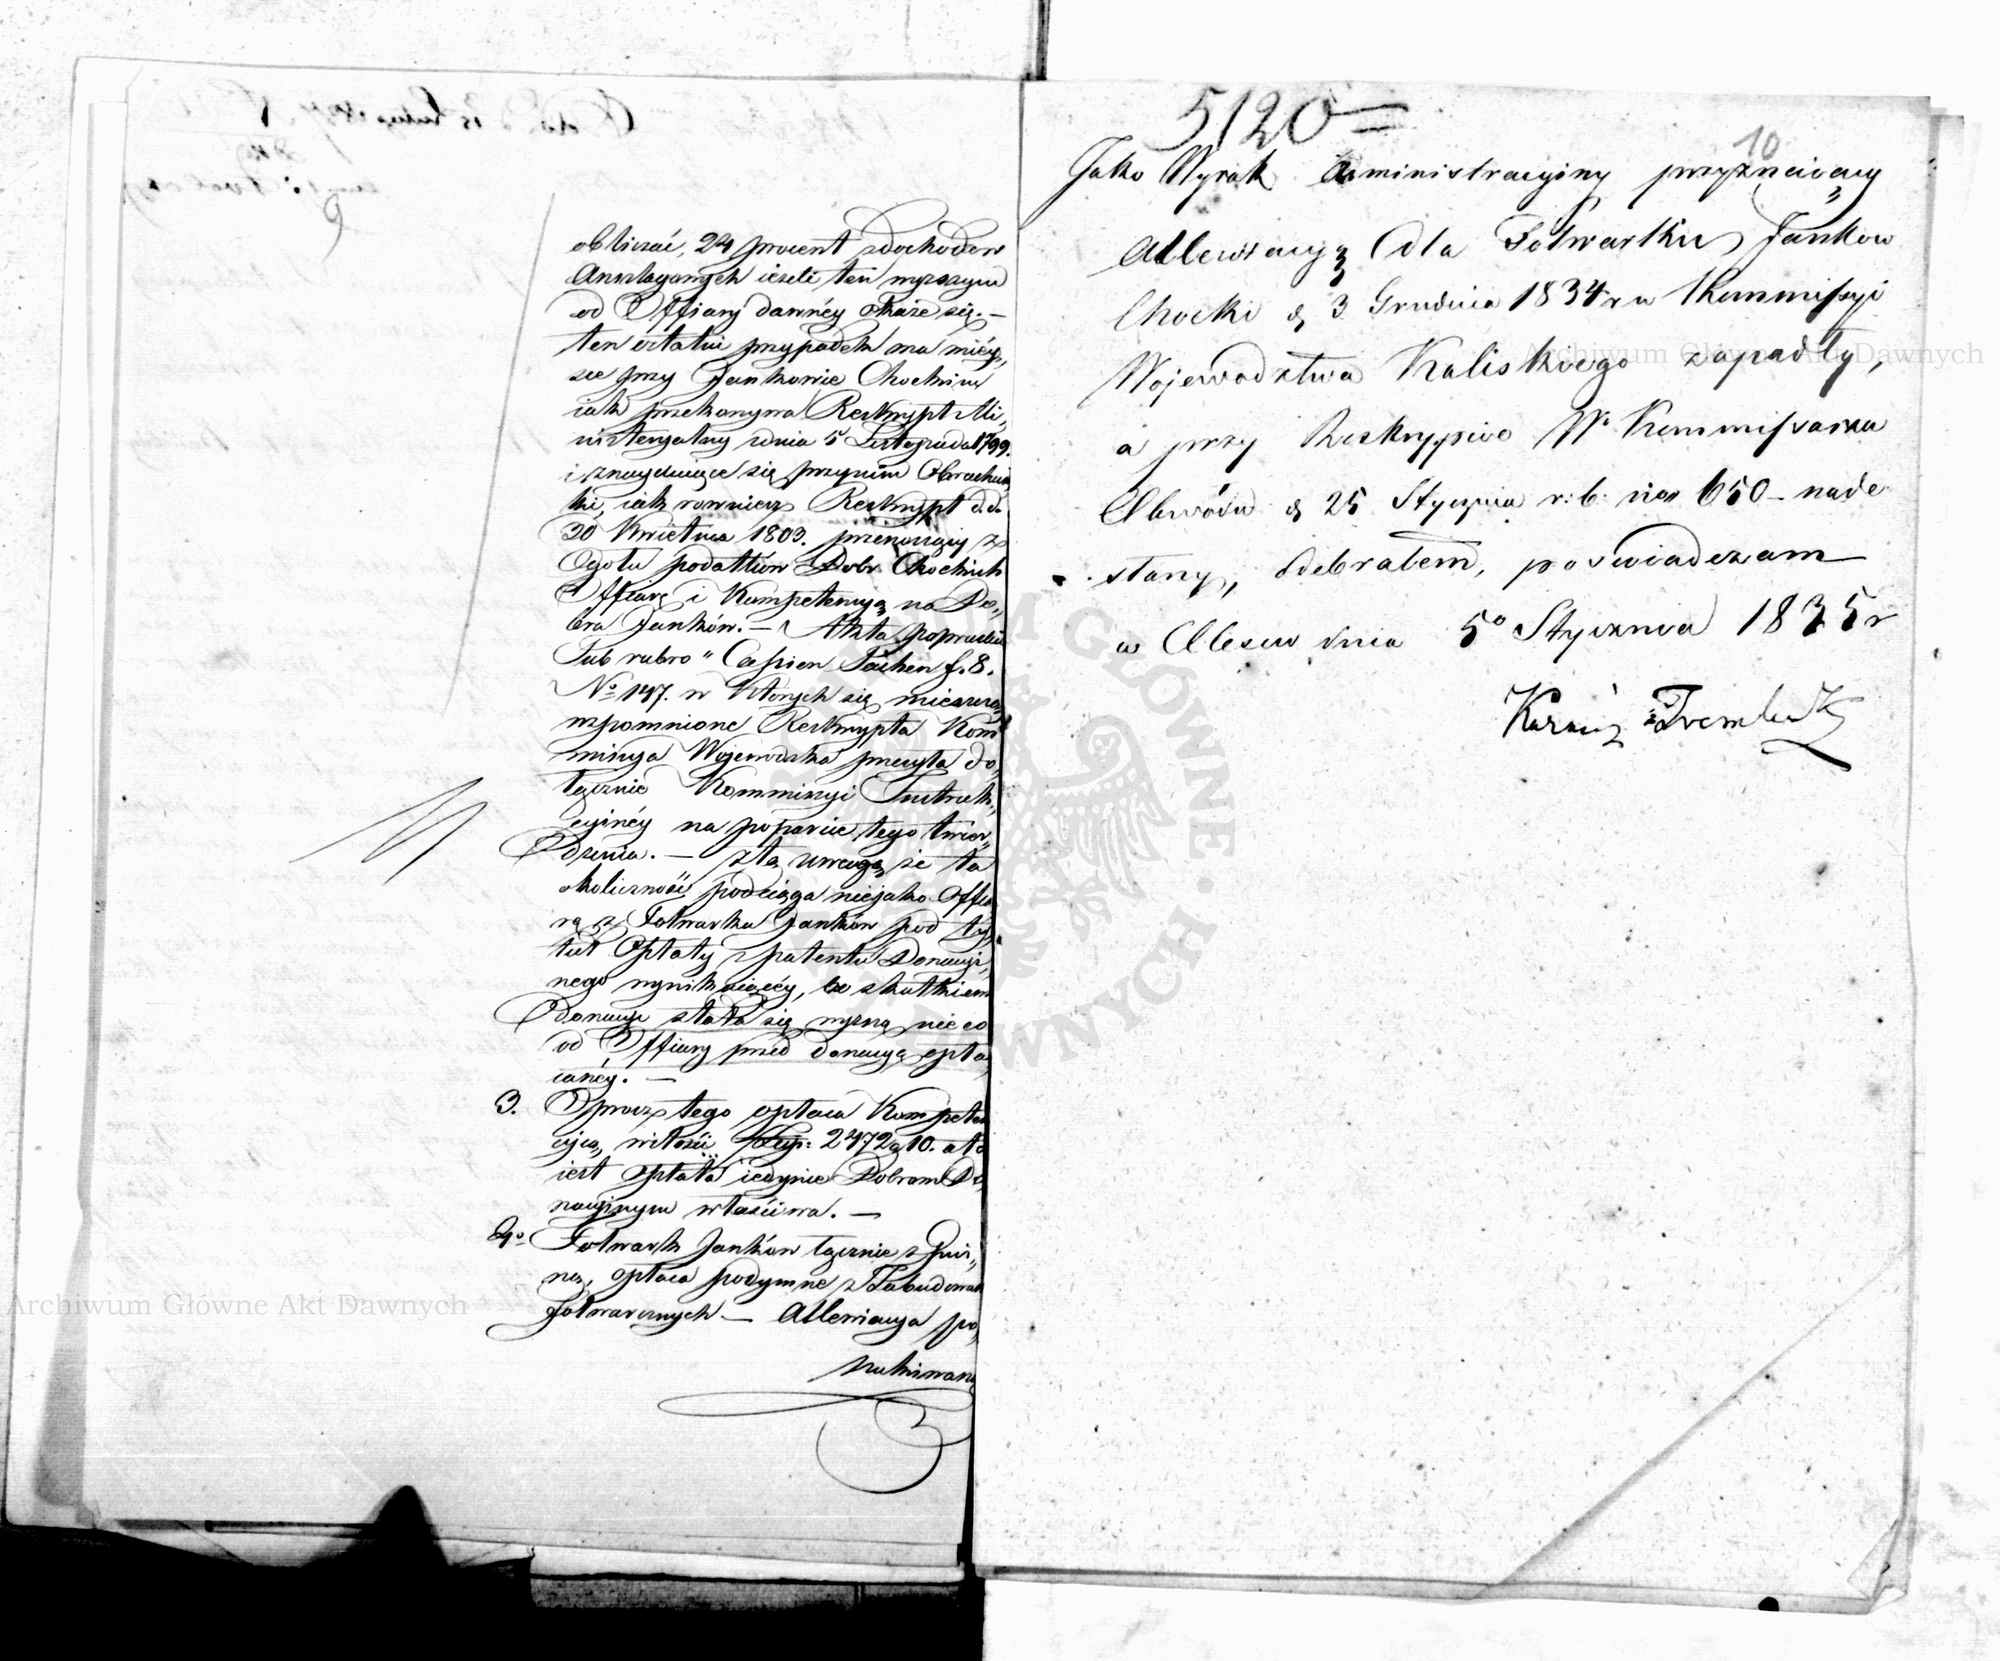 obliczać, 24 procent z dochodów
Anszlagowych ieżeli ten wyższym
od Offiary dawnéy okaże się. —
ten ostatni przypadek ma miéy„
sce przy Jankowie Chockim
iak przekonywa Reskrypt Mi„
nisteryalny z dnia 5 Listopada 1799.
i znayduiące się przy nim Obrachun
ki, iak rownież Reskrypt d. d.
30 Kwietnia 1803. przenoszący z
Ogołu podatków Dobr Chockich
Offiarę i Kompetencyą na Do„
bra Janków. — Akta popruskie
Sub rubro „ Cassien Sachen f. 8.
No 147. w których się mieszczą
wspomnione Reskrypta Kom
missya Wojewodzka przesyła do„
łącznie Kommissyi Instruk„
cyinéy na poparcie tego twier„
dzenia. — z tą uwagą że ta
okoliczność podciąga niejako Offia
rę z Folwarku Janków pod ty„
tuł Opłaty z patentu Donacyi„
nego wynikaiącéy, bo skutkiem
donacyi stała się wyższą nieco
od Offiary przed donacyą opła
canéy. —
3. Oprocz tego opłaca Kompeten
cyią, w ilości 2472 g 10. a ta
iest opłata iedynie Dobrom Do„
nacyinym właściwa. —
4o Folwark Janków łącznie z
ną, opłaca podymne z Zabudowań
folwarcznych — Allewiacya po„
szukiwaną
5120 =
10
Jako Wyrok Administracyiny przyznaiący
Allewiacyą dla Folwarku Jankow
Chocki d 3 Grudnia 1834 r u Kommissyi
Wojewodztwa Kaliskiego zapadły,
a przy Reskrypcie W. Kommissarza
Obwodu d 25 Stycznia r. b. nro 650 — nade
słany, odebrałem, poswiadczam
w Olesiu dnia 5o Stycznia 1835 r
Trembick
Archiwum Główne Akt Dawnych
Archiwum Główne Akt Dawnych